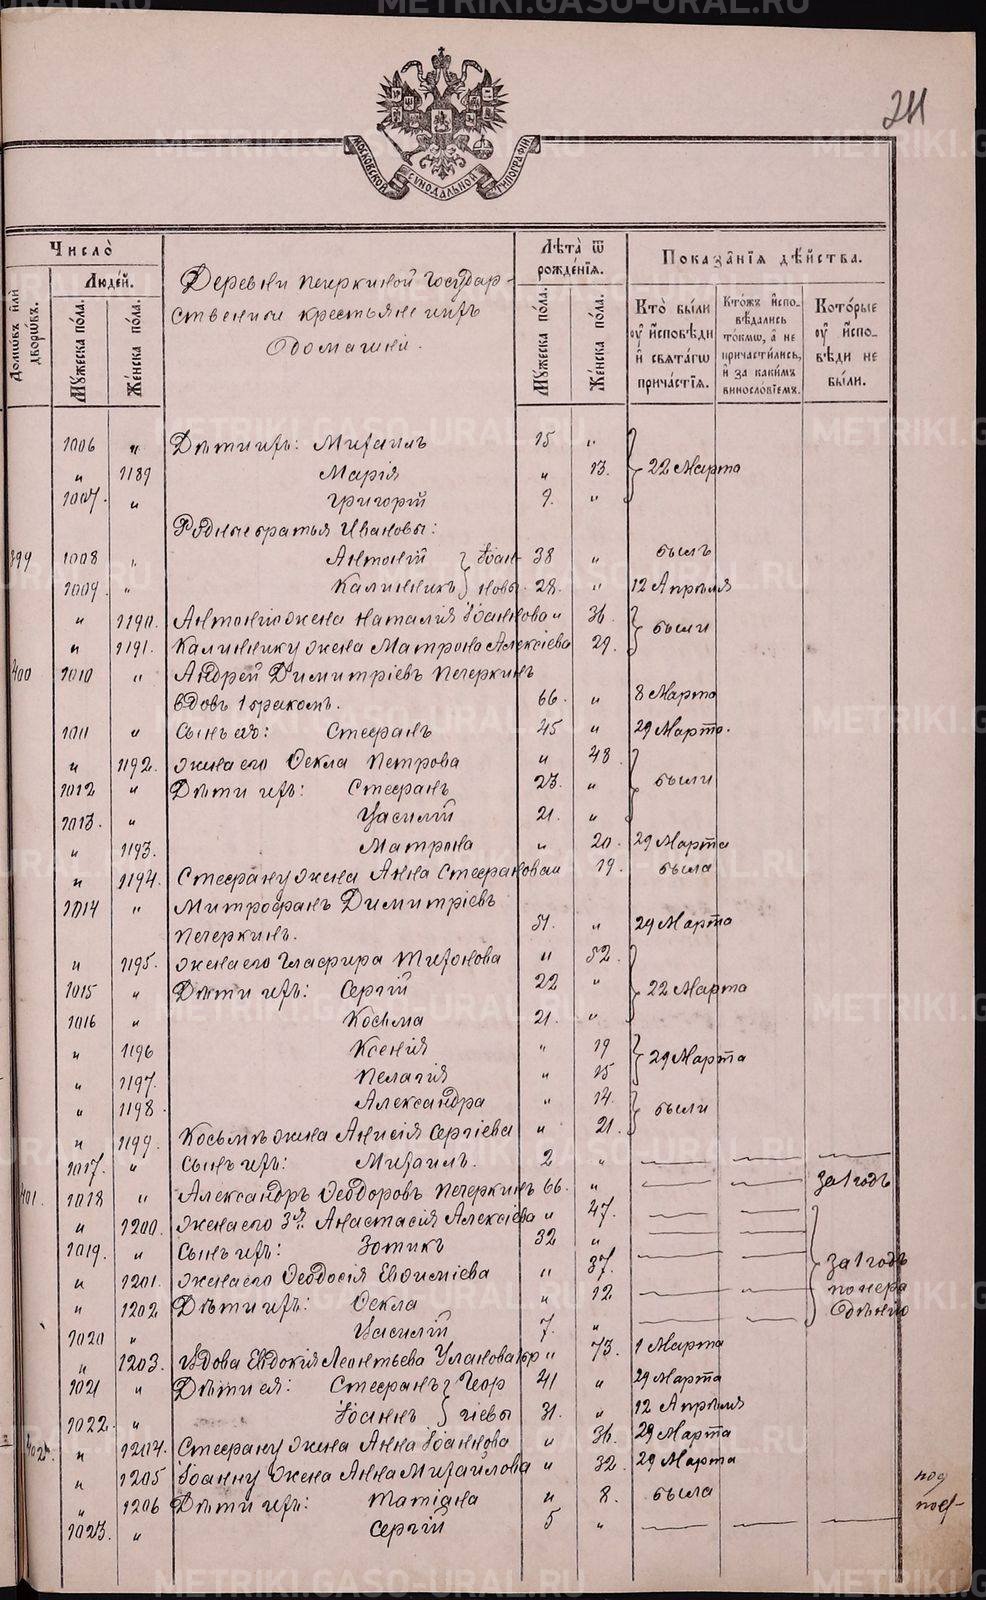 METRIKI.GASO-URAL.RU
241
МОСКОВСКОЙ СѴНОДАЛЬНОЙ ТИПОГРАФІИ
Число̀
Домѡ́въ и҆лѝ дворѡ́въ.
Люде́й.
Мꙋ́жеска по́ла.
Же́нска по́ла.
Деревни Печеркиной Государ-
ственные крестьяне ихъ
домашни.
Лѣ́та ѿ рожде́нїѧ.
Мꙋ́жеска по́ла.
Же́нска по́ла.
Показа̑нїѧ дѣ́йства.
Кто̀ бы́ли оу҆ и҆́сповѣди и҆ свѧта́гѡ прича́стїѧ.
Кто́жъ и҆спо-вѣ́дались то́кмѡ, а҆ не причасти́лись, и҆ за каки́мъ винословїемъ.
Кото́рые оу҆ и҆́спо-вѣди не бы́ли.
1006 „ Дѣти ихъ: Михаилъ 15 „
„ 1189 Марія „ 13. 22 Марта
1007. „ Григорій 9. „
Родные братья Ивановы:
399 1008 „ Антоній } Іоан- 38 „ былъ
1009. „ Калинникъ } новы. 28. „ 12 Апрѣля
„ 1190. Антонію жена Наталія Іоаннова „ 36.
„ 1191. Калиннику жена Матрона Алексіева 29. были
400 1010 „ Андрей Димитріевъ Печеркинъ
вдовъ 1 бракомъ. 66. „ 8 Марта
1011 „ Сынъ его: Стефанъ 45 „ 29 Марта.
„ 1192. жена его Өекла Петрова „ 48.
1012 „ Дѣти ихъ: Стефанъ 23. „ были
1013. „ Василій 21. „
„ 1193. Матрона „ 20. 29 Марта
„ 1194. Стефану жена Анна Стефанова „ 19. была
1014 „ Митрофанъ Димитріевъ
Печеркинъ. 51. „ 29 Марта
„ 1195. жена его Глафира Тихонова „ 52.
1015 „ Дѣти ихъ: Сергій 22 „ 22 Марта
1016 „ Косьма 21. „
„ 1196 Ксенія „ 19
„ 1197. Пелагія „ 15 29 Марта
„ 1198. Александра „ 14.
„ 1199. Косьмѣ жена Анисія Сергіева „ 21. были
1017. „ Сынъ ихъ: Михаилъ. 2 „
401. 1018 „ Александръ Өеодоровъ Печеркинъ 66. „ за 1 годъ
„ 1200. жена его 3я. Анастасія Алексіева „ 47.
1019. „ Сынъ ихъ: Зотикъ 32 „
„ 1201. жена его Өеодосія Евфиміева „ 37. за 1 годъ
„ 1202 Дѣти ихъ: Өекла „ 12 по нера
1020 „ Василій 7. „ дѣнію
„ 1203. Вдова Евдокія Леонтьева Уланова „ 73. 1 Марта
1021 „ Дѣти ея: Стефанъ } Геор 41 „ 29 Марта
1022. „ Іоаннъ } гіевы 31. „ 12 Апрѣля
402. „ 1204. Стефану жена Анна Іоаннова „ 36. 29 Марта
„ 1205 Іоанну жена Анна Михайлова „ 32. 29 Марта
„ 1206 Дѣти ихъ: Татіана „ 8. была
1023. „ Сергій 5 „